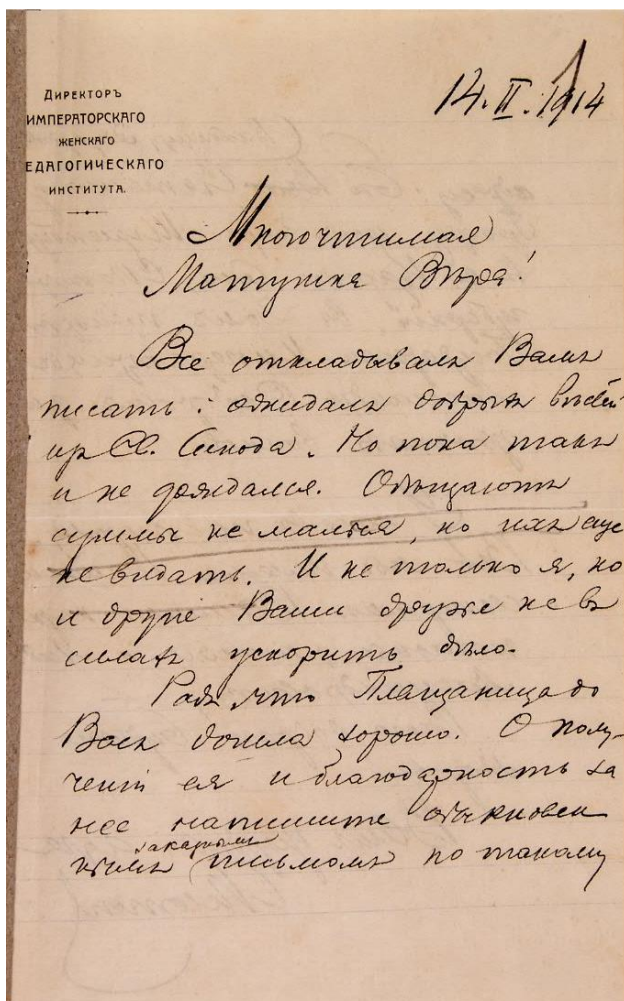 Директоръ
Императорскаго
женскаго
едагогическаго
института.
14. II. 1914
Многочтимая
Матушка Вѣра!
Все откладывалъ Вамъ
писать: ожидалъ добрыхъ вѣстей
изъ Св. Синода. Но пока такъ
и не дождался. Обѣщаютъ
суммы не малыя, но ихъ еще
не видать. И не только я, но
и другіе Ваши друзья не въ
силахъ ускорить дѣло.
Радъ что Плащаница до
Васъ дошла хорошо. О полу-
ченіи ея и благодарность за
нее напишите обыкновен
нымъ закрытымъ письмомъ по такому